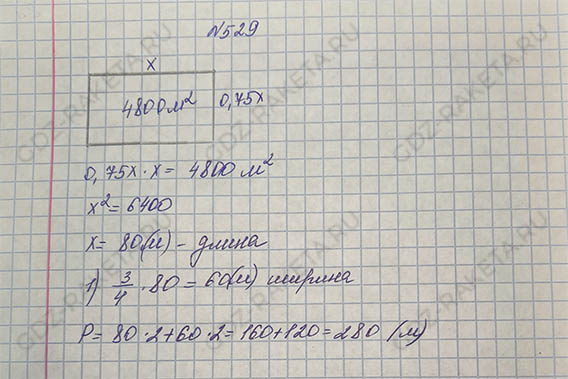 №529
x
4800 м² 0,75x
0,75x · x = 4800 м²
x² = 6400
x = 80 (м) - длина
1) 3/4 · 80 = 60 (м) ширина
P = 80 · 2 + 60 · 2 = 160 + 120 = 280 (м)
GDZ-RAKETA.RU
GDZ-RAKETA.RU
GDZ-RAKETA.RU
GDZ-RAKETA.RU
GDZ-RAKETA.RU
GDZ-RAKETA.RU